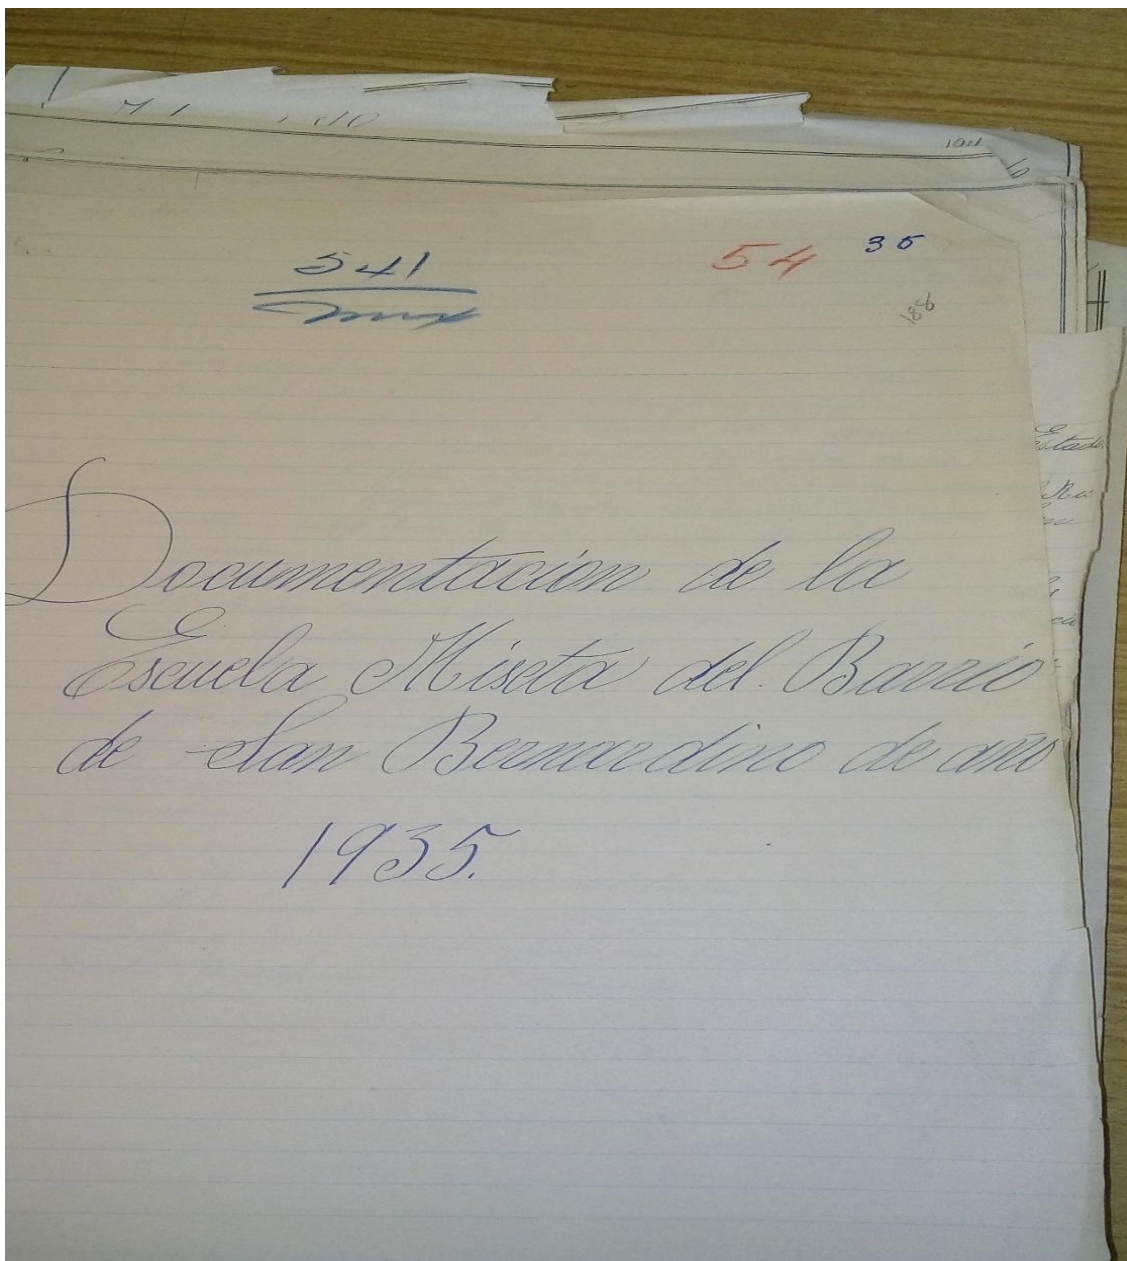 541
54
35
186
Documentación de la
Escuela Mixta del Barrio
de San Bernardino de año
1935.
Estado